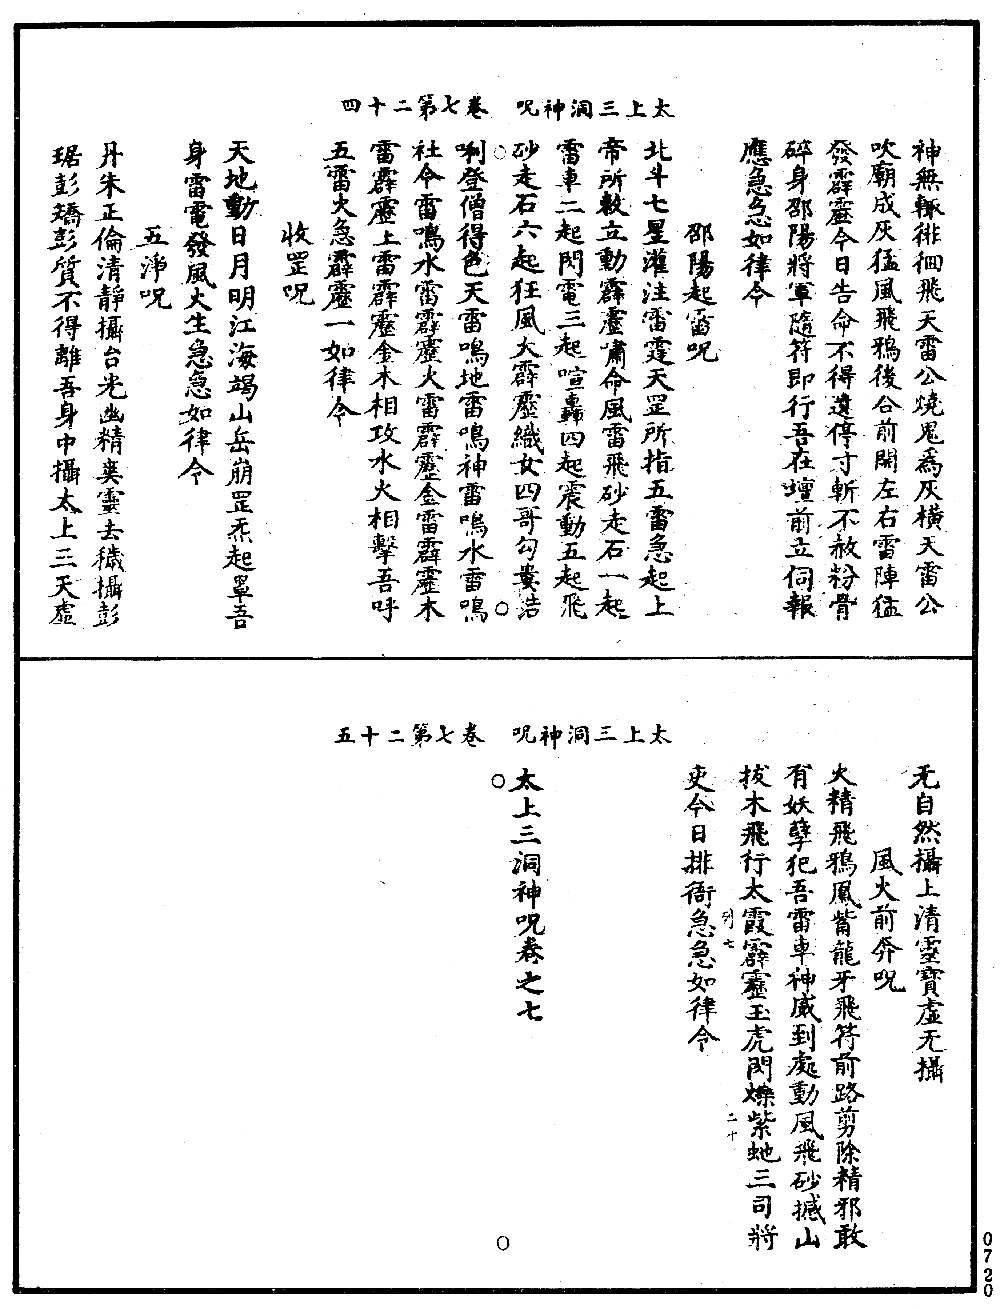 太上三洞神呪　卷七第二十四
神無輙徘徊飛天雷公燒鬼爲灰橫天雷公
吹廟成灰猛風飛鴉後合前開左右雷陣猛
發霹靂今日告命不得遺停寸斬不赦粉骨
碎身邵陽將軍隨符即行吾在壇前立伺報
應急急如律令
邵陽起雷呪
北斗七星灌注雷霆天罡所指五雷急起上
帝所敕立動霹靂嘯命風雷飛砂走石一起
雷車二起閃電三起喧轟四起震動五起飛
砂走石六起狂風大霹靂織女四哥勾婁浩
唎登僧得色天雷鳴地雷鳴神雷鳴水雷鳴
社令雷鳴水雷霹靂火雷霹靂金雷霹靂木
雷霹靂土雷霹靂金木相攻水火相擊吾呼
五雷火急霹靂一如律令
收罡呪
天地動日月明江海竭山岳崩罡炁起罩吾
身雷電發風火生急急如律令
五淨呪
丹朱正倫清靜攝台光幽精爽靈去穢攝彭
琚彭矯彭質不得離吾身中攝太上三天虛
太上三洞神呪　卷七第二十五
无自然攝上清靈寶虛无攝
風火前奔呪
火精飛鴉鳳觜龍牙飛符前路剪除精邪敢
有妖孽犯吾雷車神威到處動風飛砂撼山
拔木飛行太霞霹靂玉虎閃爍紫虵三司將
列七
二十
吏今日排衙急急如律令
太上三洞神呪卷之七
0720